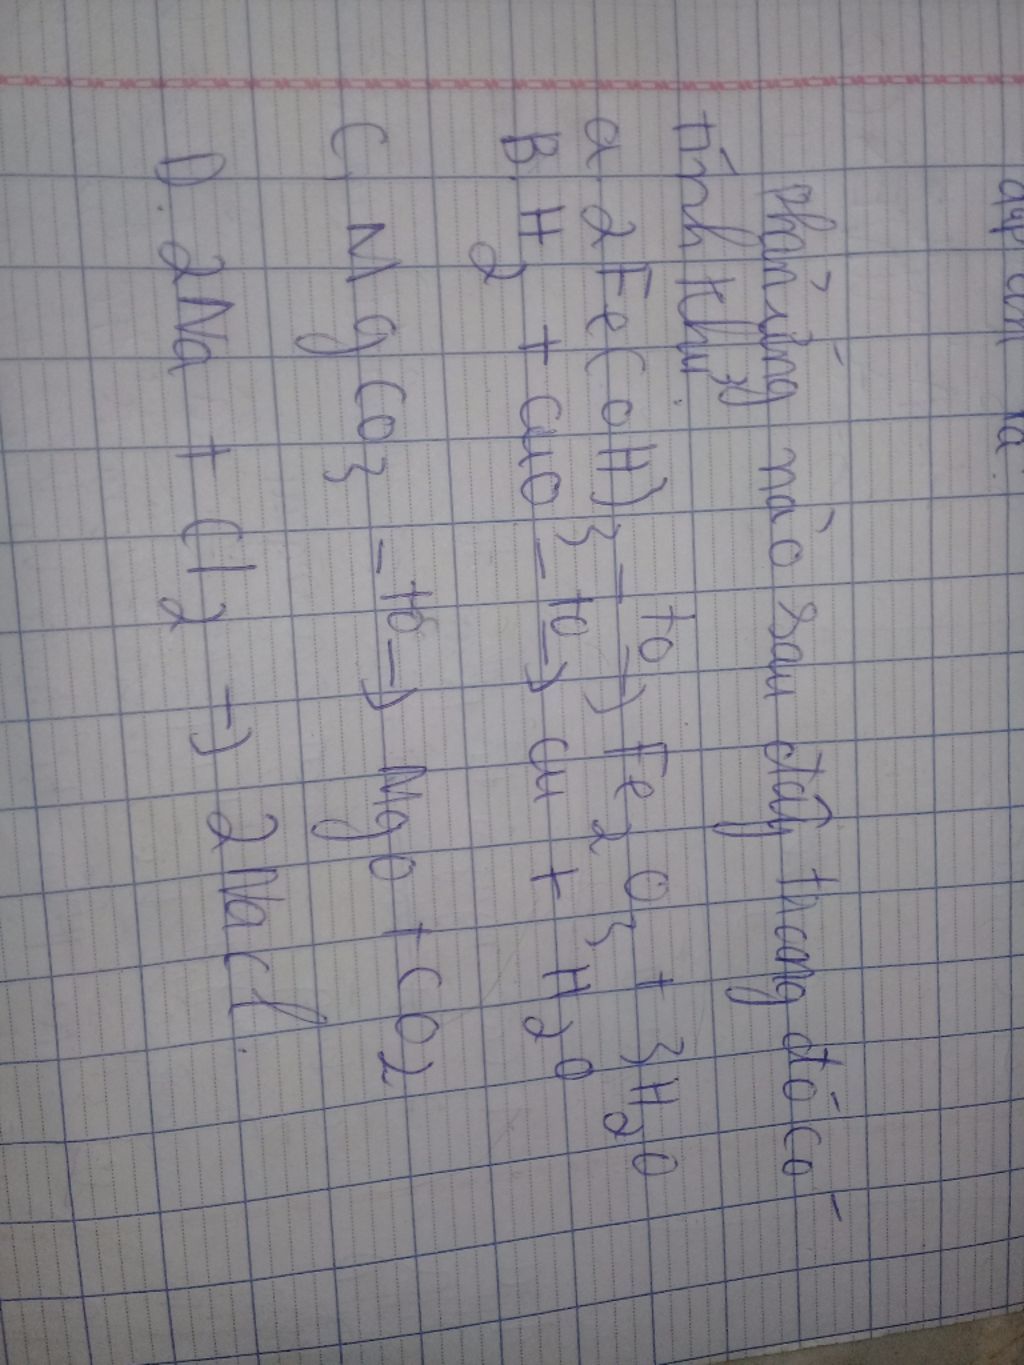 đáp án là
Phản ứng nào sau đây trong đó có
tính khử.
a. 2Fe(OH)3 -to-> Fe2O3 + 3H2O
B. H2 + CuO -to-> Cu + H2O
C, MgCO3 -to-> MgO + CO2
D. 2Na + Cl2 -> 2NaCl.